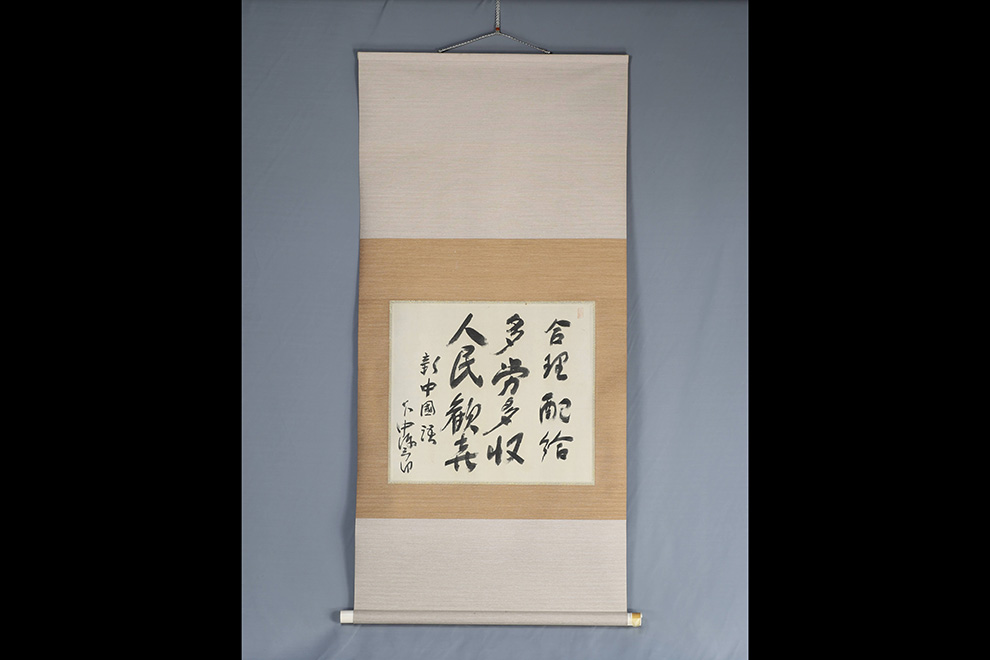 合理配給
多労多収
人民歓喜
新中國語
下中弥三郎